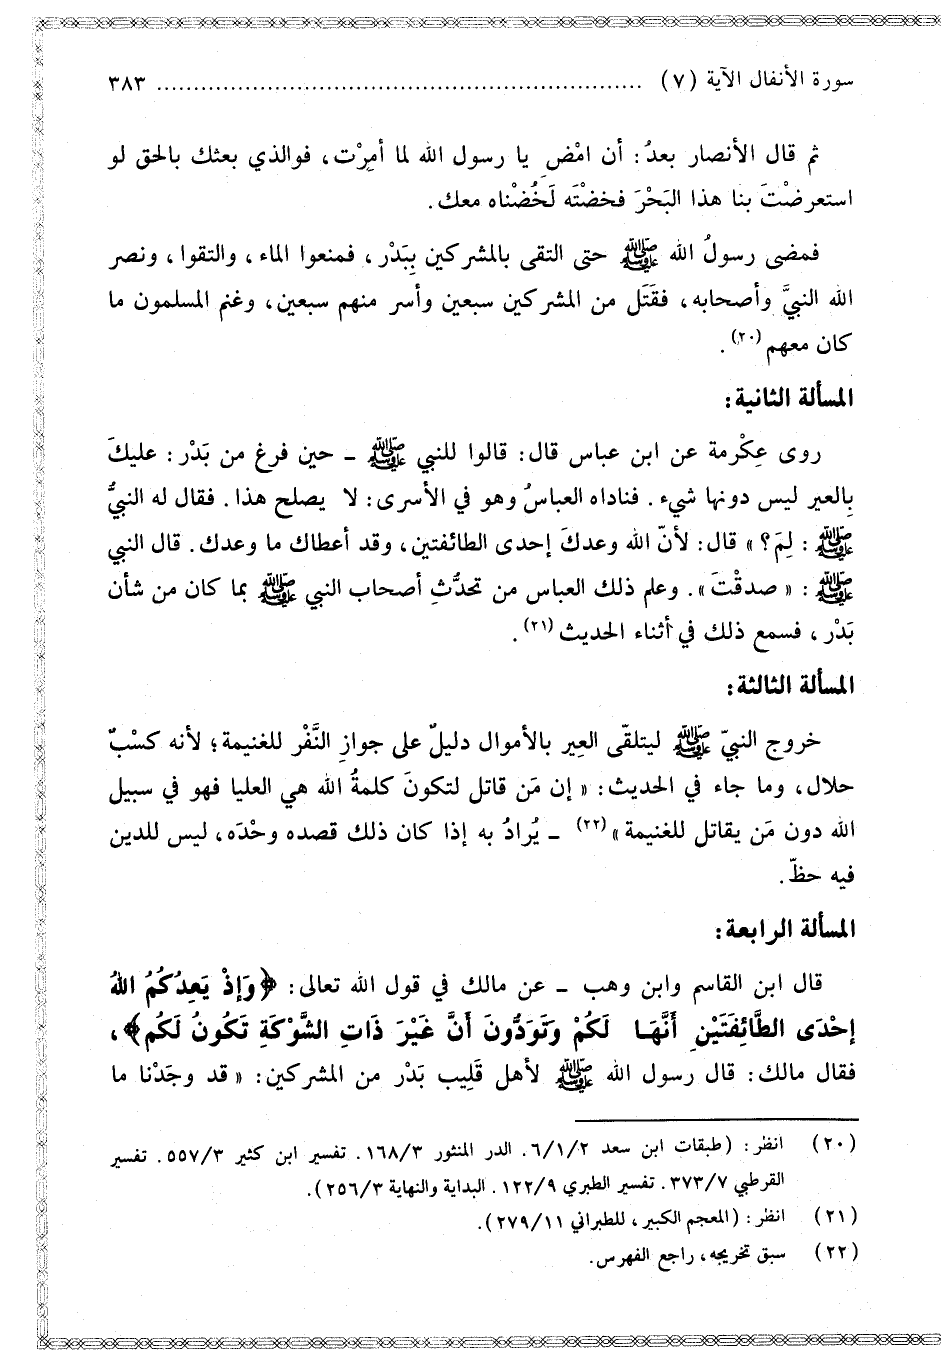 سورة الأنفال الآية (٧) ................................................................ ٣٨٣
ثم قال الأنصار بعدُ: أن امْضِ يا رسول الله لما أمِرْت، فوالذي بعثك بالحق لو
استعرضْتَ بنا هذا البَحْرَ فخضْتَه لَخُضْناه معك.
فمضى رسولُ الله ﷺ حتى التقى بالمشركين بِبَدْر، فمنعوا الماء، والتقوا، ونصر
الله النبيَّ وأصحابه، فقَتَل من المشركين سبعين وأسر منهم سبعين، وغنم المسلمون ما
كان معهم (٢٠).
المسألة الثانية:
روى عِكْرمة عن ابن عباس قال: قالوا للنبي ﷺ ـ حين فرغ من بَدْر: عليكَ
بِالعير ليس دونها شيء. فناداه العباسُ وهو في الأسرى: لا يصلح هذا. فقال له النبيُّ
ﷺ: لِمَ؟» قال: لأنّ الله وعدكَ إحدى الطائفتين، وقد أعطاك ما وعدك. قال النبي
ﷺ: «صدقْتَ». وعلم ذلك العباس من تحدُّثِ أصحاب النبي ﷺ بما كان من شأن
بَدْر، فسمع ذلك في أثناء الحديث (٢١).
المسألة الثالثة:
خروج النبيّ ﷺ ليتلقّى العِير بالأموال دليلٌ على جوازِ النَّفْر للغنيمة؛ لأنه كسْبٌ
حلال، وما جاء في الحديث: «إن مَن قاتل لتكونَ كلمةُ الله هي العليا فهو في سبيل
الله دون مَن يقاتل للغنيمة» (٢٢) ـ يُرادُ به إذا كان ذلك قصده وحْدَه، ليس للدين
فيه حظّ.
المسألة الرابعة:
قال ابن القاسم وابن وهب ـ عن مالك في قول الله تعالى: ﴿وَإِذْ يَعِدُكُمُ اللهُ
إحْدَى الطَّائِفَتَيْنِ أَنَّهَا لَكُمْ وَتَوَدُّونَ أَنَّ غَيْرَ ذَاتِ الشَّوْكَةِ تَكُونُ لَكُم﴾،
فقال مالك: قال رسول الله ﷺ لأهل قَلِيب بَدْر من المشركين: «قد وجَدْنا ما
(٢٠) انظر: (طبقات ابن سعد ٦/١/٢. الدر المنثور ١٦٨/٣. تفسير ابن كثير ٥٥٧/٣. تفسير
القرطبي ٣٧٣/٧. تفسير الطبري ١٢٢/٩. البداية والنهاية ٢٥٦/٣).
(٢١) انظر: (المعجم الكبير، للطبراني ٢٧٩/١١).
(٢٢) سبق تخريجه، راجع الفهرس.